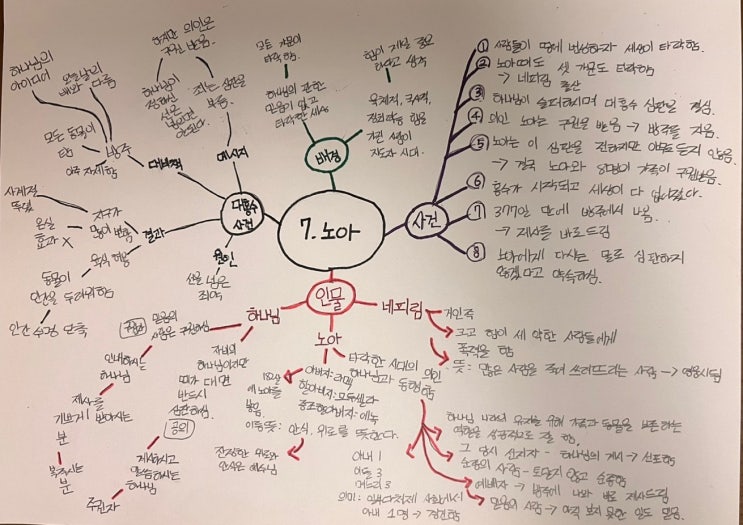 7. 노아
배경
모든 가문이
타락함
하나님에 관한
믿음이 없고
타락한 세상
힘이 제일 좋은
거라고 생각
육체적, 군사적,
정치적 힘을
가진 사람이
지도자 시대.
사건
① 사람들이 땅에 번성하자 세상이 타락함.
② 노아때도 셋 가문도 타락함
→ 네피림 출산
③ 하나님이 슬퍼하시며 대홍수 심판을 결심.
④ 의인 노아는 구원을 받음 → 방주를 지음.
⑤ 노아는 이 심판을 전하지만 아무도 듣지 않음.
→ 결국 노아와 8명의 가족이 구원받음.
⑥ 홍수가 시작되고 세상이 다 잠겼다.
⑦ 377일 만에 방주에서 나옴.
→ 제사를 바로 드림
⑧ 노아에게 다시는 물로 심판하지
않겠다고 약속하심.
대홍수
사건
메시지
죄는 심판을
부름.
하나님이
정하신
선을
넘으면
안된다.
하지만 의인은
구원 받음.
대비책
방주
하나님의
아이디어
오늘날의
배와 다름
모든 동물이
탐
아주 자세함
결과
지구가
많이 변함
사계절
뚜렷
온실
효과 X
육식 허용
동물이
인간을 두려워함
인간 수명 단축
원인
선을 넘은
죄악
인물
하나님
믿음의
사람은 구원하심
인내하시는
하나님
제사를
기쁘게 받아시는
분
복주시는
분
자비의
하나님이지만
때가 되면
반드시
심판하심.
공의
계시하시고
말씀하시는
하나님
주관자
노아
182살
에 노아를
낳음
아버지: 라멕
할아버지: 므두셀라
증조할아버지: 에녹
이름뜻: 안식, 위로를 뜻한다.
진정한 위로와
안식은 예수님
아내 1
아들 3
며느리 3
의인: 일부다처제 사회에서
아내 1명 → 경건함
타락한 시대의 의인
하나님과 동행함
하나님 나라의 유지를 위해 가족과 동물을 보존하는
역할을 성공적으로 잘 함.
그 당시 선지자 - 하나님의 계시 → 선포함
순종의 사람 - 토달지 않고 순종함
예배자 → 방주에 나와 바로 제사드림
믿음의 사람 → 아직 보지 못한 일도 믿음.
네피림
거인족
크고 힘이 세 약한 사람들에게
폭력을 함
뜻: 많은 사람을 죽여 쓰러뜨리는 사람 → 영웅시됨